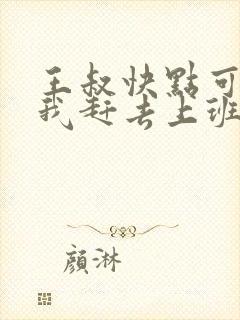 王叔快點可
我赶去上班
顔淋